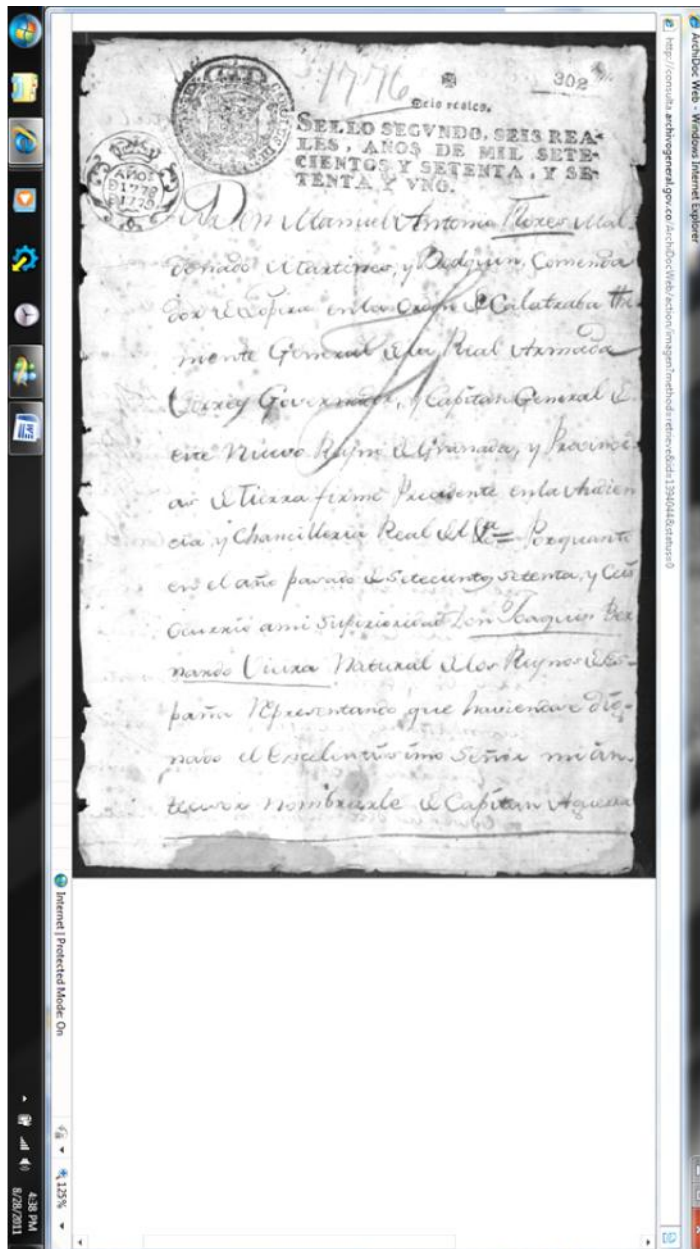 ArchiDoc Web - Windows Internet Explorer
http://consulta.archivogeneral.gov.co/ArchiDocWeb/action/imagen?method=retrieve&id=1394044&status=0
1776
302
Seis reales.
SELLO SEGVNDO, SEIS REA-
LES, AÑOS DE MIL SETE-
CIENTOS Y SETENTA, Y SE-
TENTA Y VNO.
AÑOS
D 1778
D 1779
Don Manuel Antonio Flores Mal
donado Martines, y Bodquin, Comenda
dor de Lopera en la Orden de Calatraba The
niente General de la Real Armada
Virrey Governador, y Capitan General de
este Nuevo Reyno de Granada, y Provinci
as de Tierra firme Precidente en la Audien
cia, y Chancilleria Real de = Porquanto
en el año pasado de Setecientos setenta, y Ceis
Ocurrio a mi Superioridad Don Joaquin Ber
nardo Viera Natural de los Reynos de Es-
paña Representando que haviendose dig-
nado el Excelentisimo Señor mi an
tecesor nombrarle de Capitan Aguerra
Internet | Protected Mode: On
125%
4:38 PM
8/28/2011